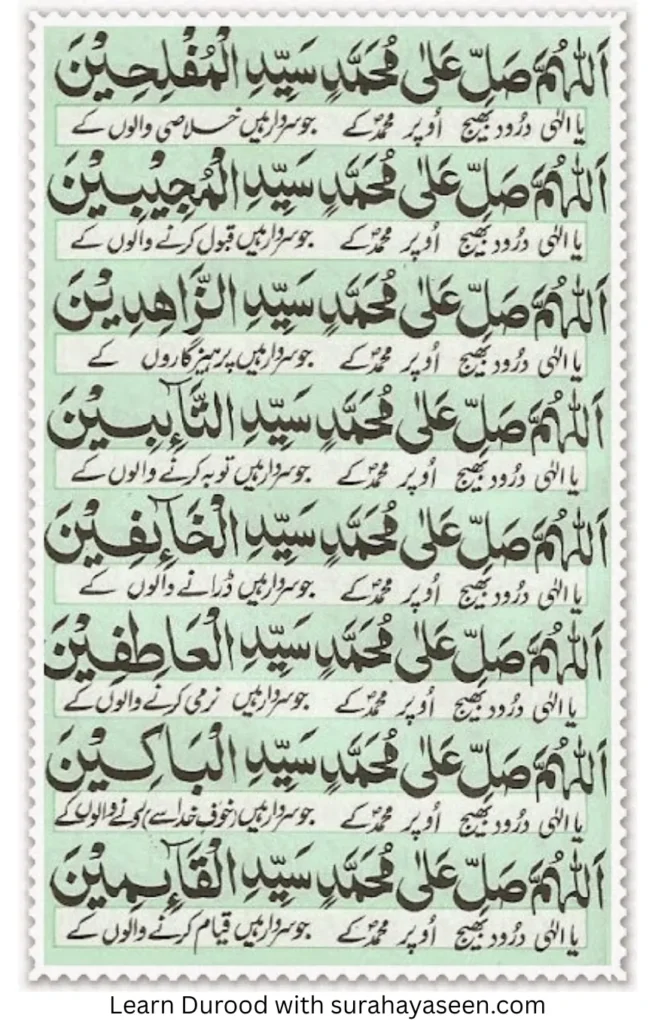 اَللّٰهُمَّ صَلِّ عَلٰى مُحَمَّدٍ سَيِّدِ الْمُفْلِحِيْنَ
یا الٰہی درُود بھیج اُوپر محمدؐ کے جو سردار ہیں خلاصی والوں کے
اَللّٰهُمَّ صَلِّ عَلٰى مُحَمَّدٍ سَيِّدِ الْمُجِيْبِيْنَ
یا الٰہی درُود بھیج اُوپر محمدؐ کے جو سردار ہیں قبول کرنے والوں کے
اَللّٰهُمَّ صَلِّ عَلٰى مُحَمَّدٍ سَيِّدِ الزَّاهِدِيْنَ
یا الٰہی درُود بھیج اُوپر محمدؐ کے جو سردار ہیں پرہیزگاروں کے
اَللّٰهُمَّ صَلِّ عَلٰى مُحَمَّدٍ سَيِّدِ التَّآئِبِيْنَ
یا الٰہی درُود بھیج اُوپر محمدؐ کے جو سردار ہیں توبہ کرنے والوں کے
اَللّٰهُمَّ صَلِّ عَلٰى مُحَمَّدٍ سَيِّدِ الْخَآئِفِيْنَ
یا الٰہی درُود بھیج اُوپر محمدؐ کے جو سردار ہیں ڈرانے والوں کے
اَللّٰهُمَّ صَلِّ عَلٰى مُحَمَّدٍ سَيِّدِ الْعَاطِفِيْنَ
یا الٰہی درُود بھیج اُوپر محمدؐ کے جو سردار ہیں نرمی کرنے والوں کے
اَللّٰهُمَّ صَلِّ عَلٰى مُحَمَّدٍ سَيِّدِ الْبَاكِيْنَ
یا الٰہی درُود بھیج اُوپر محمدؐ کے جو سردار ہیں (خوف خدا سے) والوں کے
اَللّٰهُمَّ صَلِّ عَلٰى مُحَمَّدٍ سَيِّدِ الْقَآئِمِيْنَ
یا الٰہی درُود بھیج اُوپر محمدؐ کے جو سردار ہیں قیام کرنے والوں کے
Learn Durood with surahayaseen.com